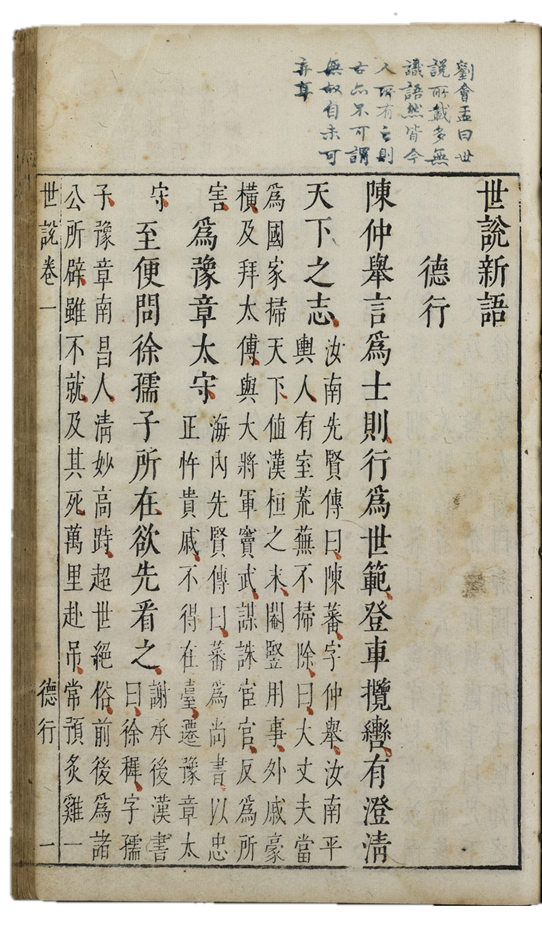 劉會孟曰世
說所載多無
識語然皆今
人所有則
古亦不可謂
無叔自未可
世說新語
德行
陳仲舉言爲士則行爲世範登車攬轡有澄清
天下之志
汝南先賢傳曰陳蕃字仲舉汝南平
輿人有室荒蕪不掃除曰大丈夫當
爲國家掃天下值漢桓之末閹豎用事外戚豪
橫及拜太傅與大將軍竇武謀誅宦官反爲所
害
爲豫章太守
海內先賢傳曰蕃爲尚書以忠
正忤貴戚不得在臺遷豫章太
守
至便問徐孺子所在欲先看之
謝承後漢書
曰徐穉字孺
子豫章南昌人清妙高跱超世絕俗前後爲諸
公所辟雖不就及其死萬里赴吊常預炙雞一
世說卷一 德行 一